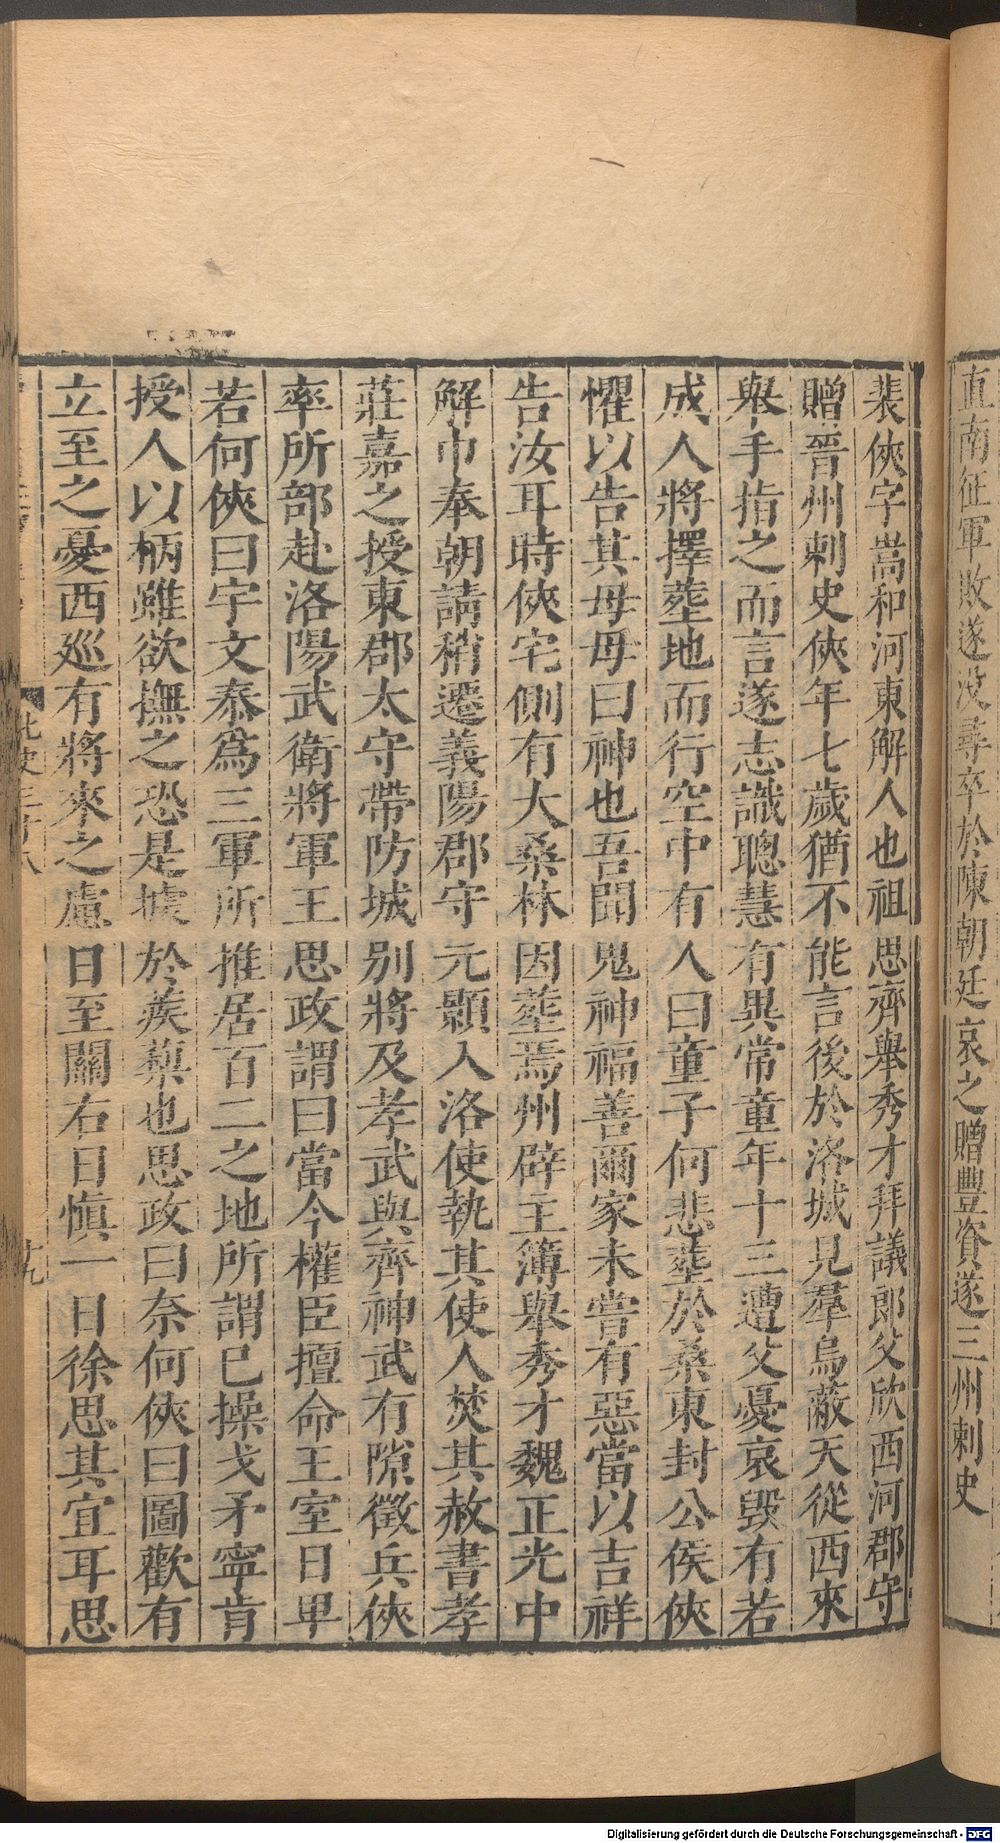 直南征軍敗遂没尋卒於陳朝廷哀之贈豐資遂三州刺史
裴俠字嵩和河東解人也祖思齊舉秀才拜議郎父欣西河郡守
贈晉州刺史俠年七歲猶不能言後於洛城見羣烏蔽天從西來
舉手指之而言遂志識聰慧有異常童年十三遭父憂哀毀有若
成人將擇塟地而行空中有人曰童子何悲塟於桑東封公侯俠
懼以告其母母曰神也吾聞鬼神福善爾家未嘗有惡當以吉祥
告汝耳時俠宅側有大桑林因塟焉州辟主簿舉秀才魏正光中
解巾奉朝請稍遷義陽郡守元顥入洛使執其使人焚其赦書孝
莊嘉之授東郡太守帶防城别將及孝武與齊神武有隙徵兵俠
率所部赴洛陽武衛將軍王思政謂曰當今權臣擅命王室日卑
若何俠曰宇文泰爲三軍所推居百二之地所謂已操戈矛寧肯
授人以柄雖欲撫之恐是據於蒺蔾也思政曰奈何俠曰圖歡有
立至之憂西巡有將來之慮且至關右日慎一日徐思其宜耳思
北史三十八
廿九
Digitalisierung gefördert durch die Deutsche Forschungsgemeinschaft - DFG